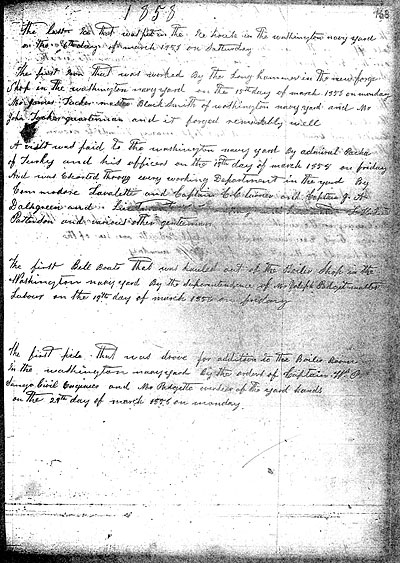 1858
168
The Laster Ice that was put in the Ice house in the washington navy yard
on the 6th day of march 1858 on Saturday
The first Iron that was worked By the Long hammer in the new forge
Shop in the washington navy yard on the 15th day of march 1858 on monday
Mr James Tucker master Black Smith of washington navy yard and Mr
John Tucker quarterman and it forged remarkably well
A visit was paid to the washington navy yard By admiral Pacha
of Turkey and his officers on the day of march 1858 on friday
And was Escorted Throug every working Department in the yard By
Commodore Lavalette and Captain and Captain J. A.
Dalhgreen and
and various other gentlemen
The first Bell Boats That was hauled out of the Boiler Shop in the
Washington navy yard By the superintendence of Mr Joseph Padgett master
Labour on the 19th day of march 1858 on friday
The first pile That was drove for addition to the Boiler Room
in the washington navy yard by the orders of Captain Wm P
Sanger Civil Engineer and Mr Padgett overseer of the yard hands
on the day of march 1858 on monday